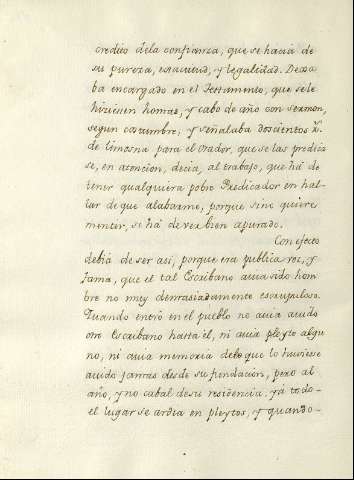 credito dela confianza, que se hacia de
su pureza, exactitud, y legalidad. Dexa
ba encargado en el Testamento, que se le
hiziesen honrras, y cabo de año con sermon,
segun costumbre; y señalaba doscientos r.s
de limosna para el orador, que se las predica
se, en atencion, decia, al trabajo, que há de
tener qualquiera pobre Predicador en hal-
lar de que alabarme, porque sino quiere
mentir, se há de ver bien apurado.
Con efecto
debia de ser asi, porque era publica voz, y
fama, que el tal Escribano avia sido hom
bre no muy demasiadamente escrupuloso.
Quando entró en el pueblo no avia avido
otro Escribano hasta él, ni avia pleyto algu
no, ni avia memoria de lo que lo huviese
avido jamas desde su fundacion, pero al
año, y no cabal de su residencia, ya todo
el lugar se ardia en pleytos, y quando-